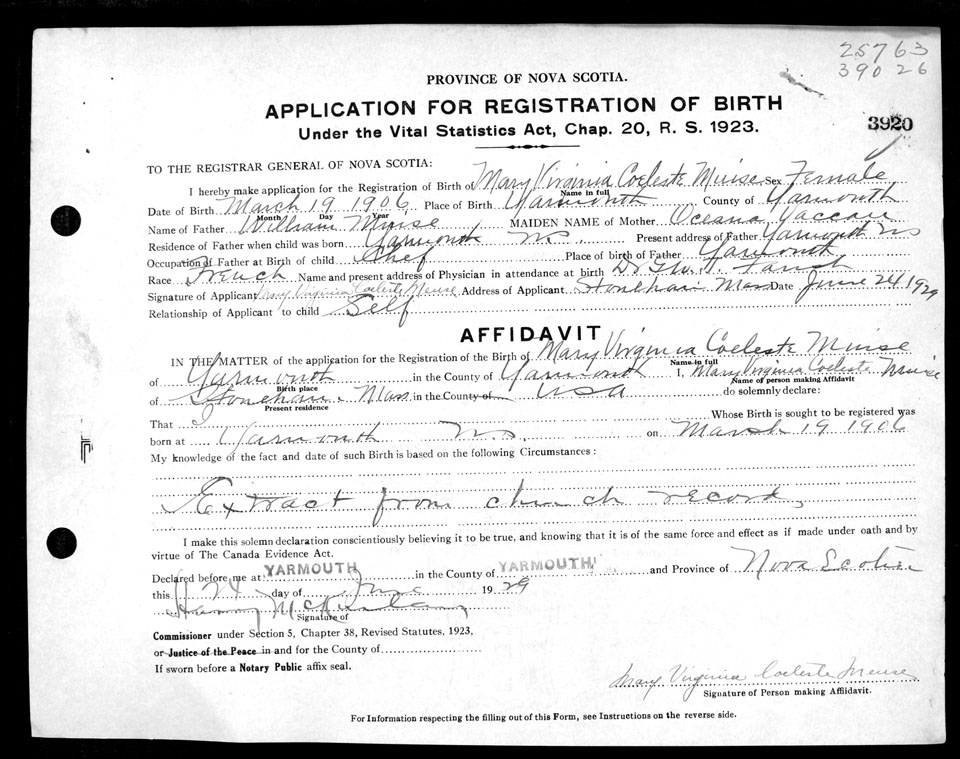 25763
39026
PROVINCE OF NOVA SCOTIA.
APPLICATION FOR REGISTRATION OF BIRTH
3920
Under the Vital Statistics Act, Chap. 20, R. S. 1923.
TO THE REGISTRAR GENERAL OF NOVA SCOTIA:
I hereby make application for the Registration of Birth of Mary Virginia Coeleste Muise Sex Female
Name in full
Date of Birth March 19 1906 Place of Birth Yarmouth County of Yarmouth
Month Day Year
Name of Father William Muise MAIDEN NAME of Mother Oceana
Residence of Father when child was born Yarmouth N.S. Present address of Father Yarmouth NS
Occupation of Father at Birth of child Chef Place of birth of Father Yarmouth
Race French Name and present address of Physician in attendance at birth Dr
Signature of Applicant Mary Virginia Coeleste Meuse Address of Applicant Stoneham Mass Date June 24 1929
Relationship of Applicant to child Self
AFFIDAVIT
IN THE MATTER of the application for the Registration of the Birth of Mary Virginia Coeleste Muise
Name in full
of Yarmouth in the County of Yarmouth I, Mary Virginia Coeleste Muise
Birth place Name of person making Affidavit
of Stoneham, Mass in the County of USA do solemnly declare:
Present residence
That I Whose Birth is sought to be registered was
born at Yarmouth N.S. on March 19 1906
My knowledge of the fact and date of such Birth is based on the following Circumstances:
Extract from church record,
I make this solemn declaration conscientiously believing it to be true, and knowing that it is of the same force and effect as if made under oath and by
virtue of The Canada Evidence Act.
Declared before me at YARMOUTH in the County of YARMOUTH and Province of Nova Scotia
this 24 day of June 1929
Harvey
Signature of
Commissioner under Section 5, Chapter 38, Revised Statutes, 1923,
or Justice of the Peace in and for the County of
If sworn before a Notary Public affix seal.
Mary Virginia Coeleste Meuse
Signature of Person making Affidavit.
For Information respecting the filling out of this Form, see Instructions on the reverse side.